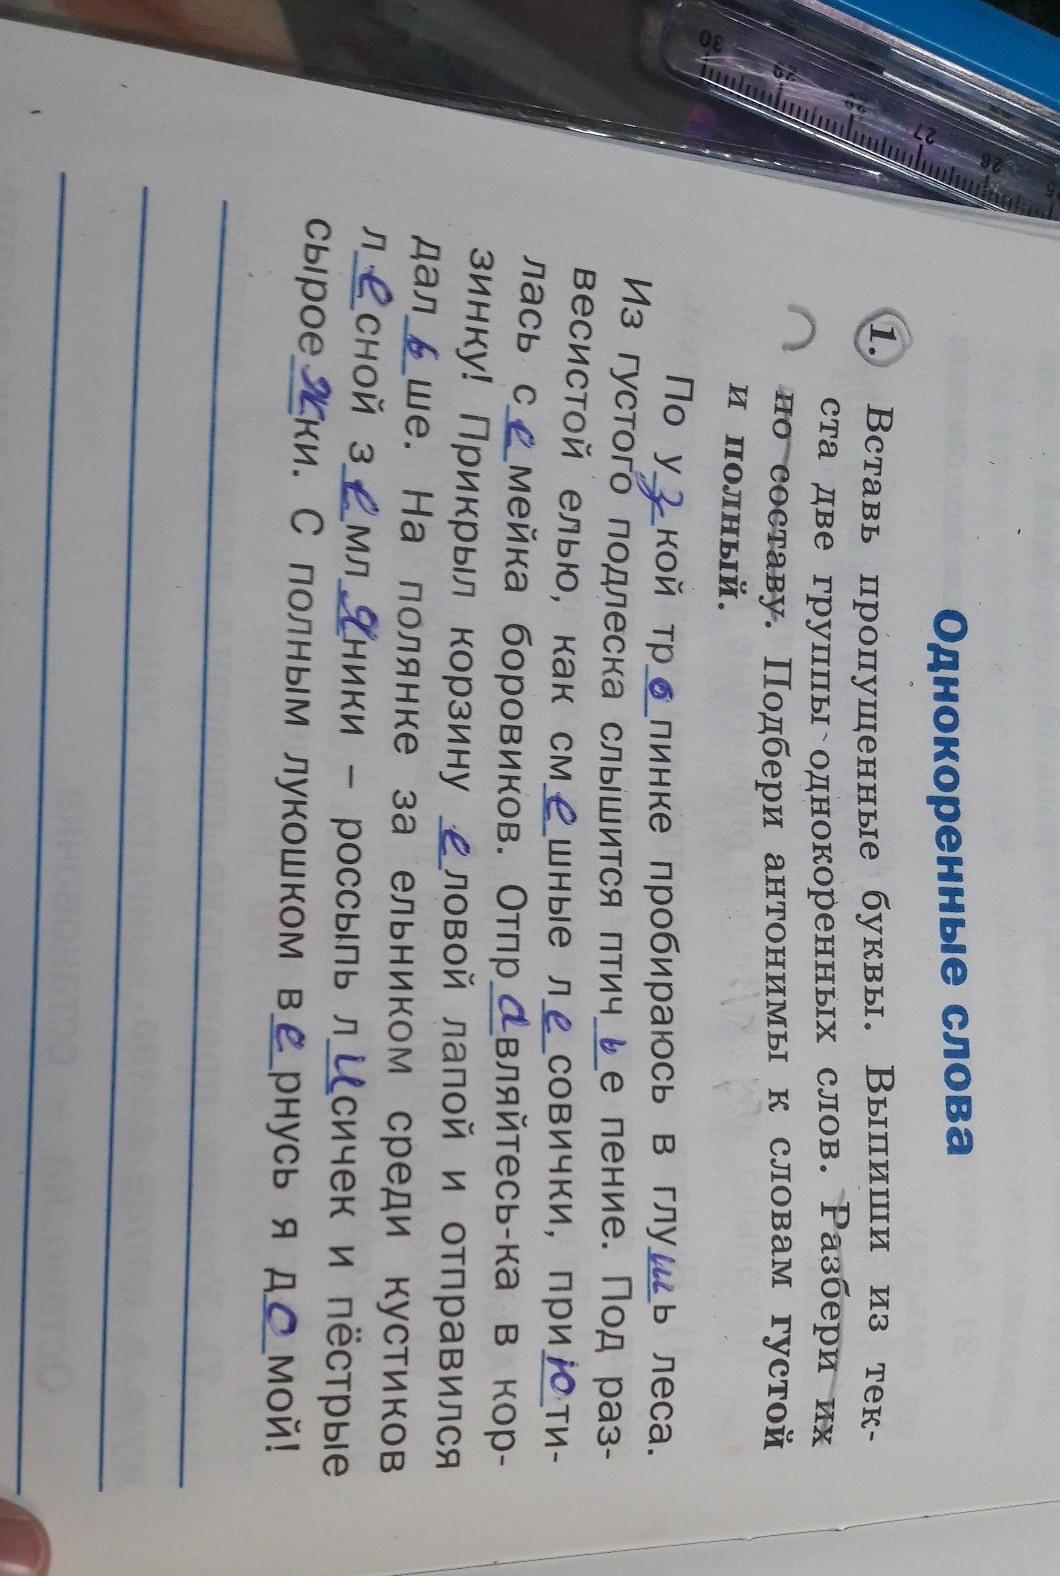 Однокоренные слова
1. Вставь пропущенные буквы. Выпиши из тек-
ста две группы однокоренных слов. Разбери их
по составу. Подбери антонимы к словам густой
и полный.
По узкой тропинке пробираюсь в глушь леса.
Из густого подлеска слышится птичье пение. Под раз-
весистой елью, как смешные лесовички, приюти-
лась семейка боровиков. Отправляйтесь-ка в кор-
зинку! Прикрыл корзину еловой лапой и отправился
дальше. На полянке за ельником среди кустиков
лесной земляники – россыпь лисичек и пёстрые
сыроежки. С полным лукошком вернусь я домой!
30
29
28
27
26